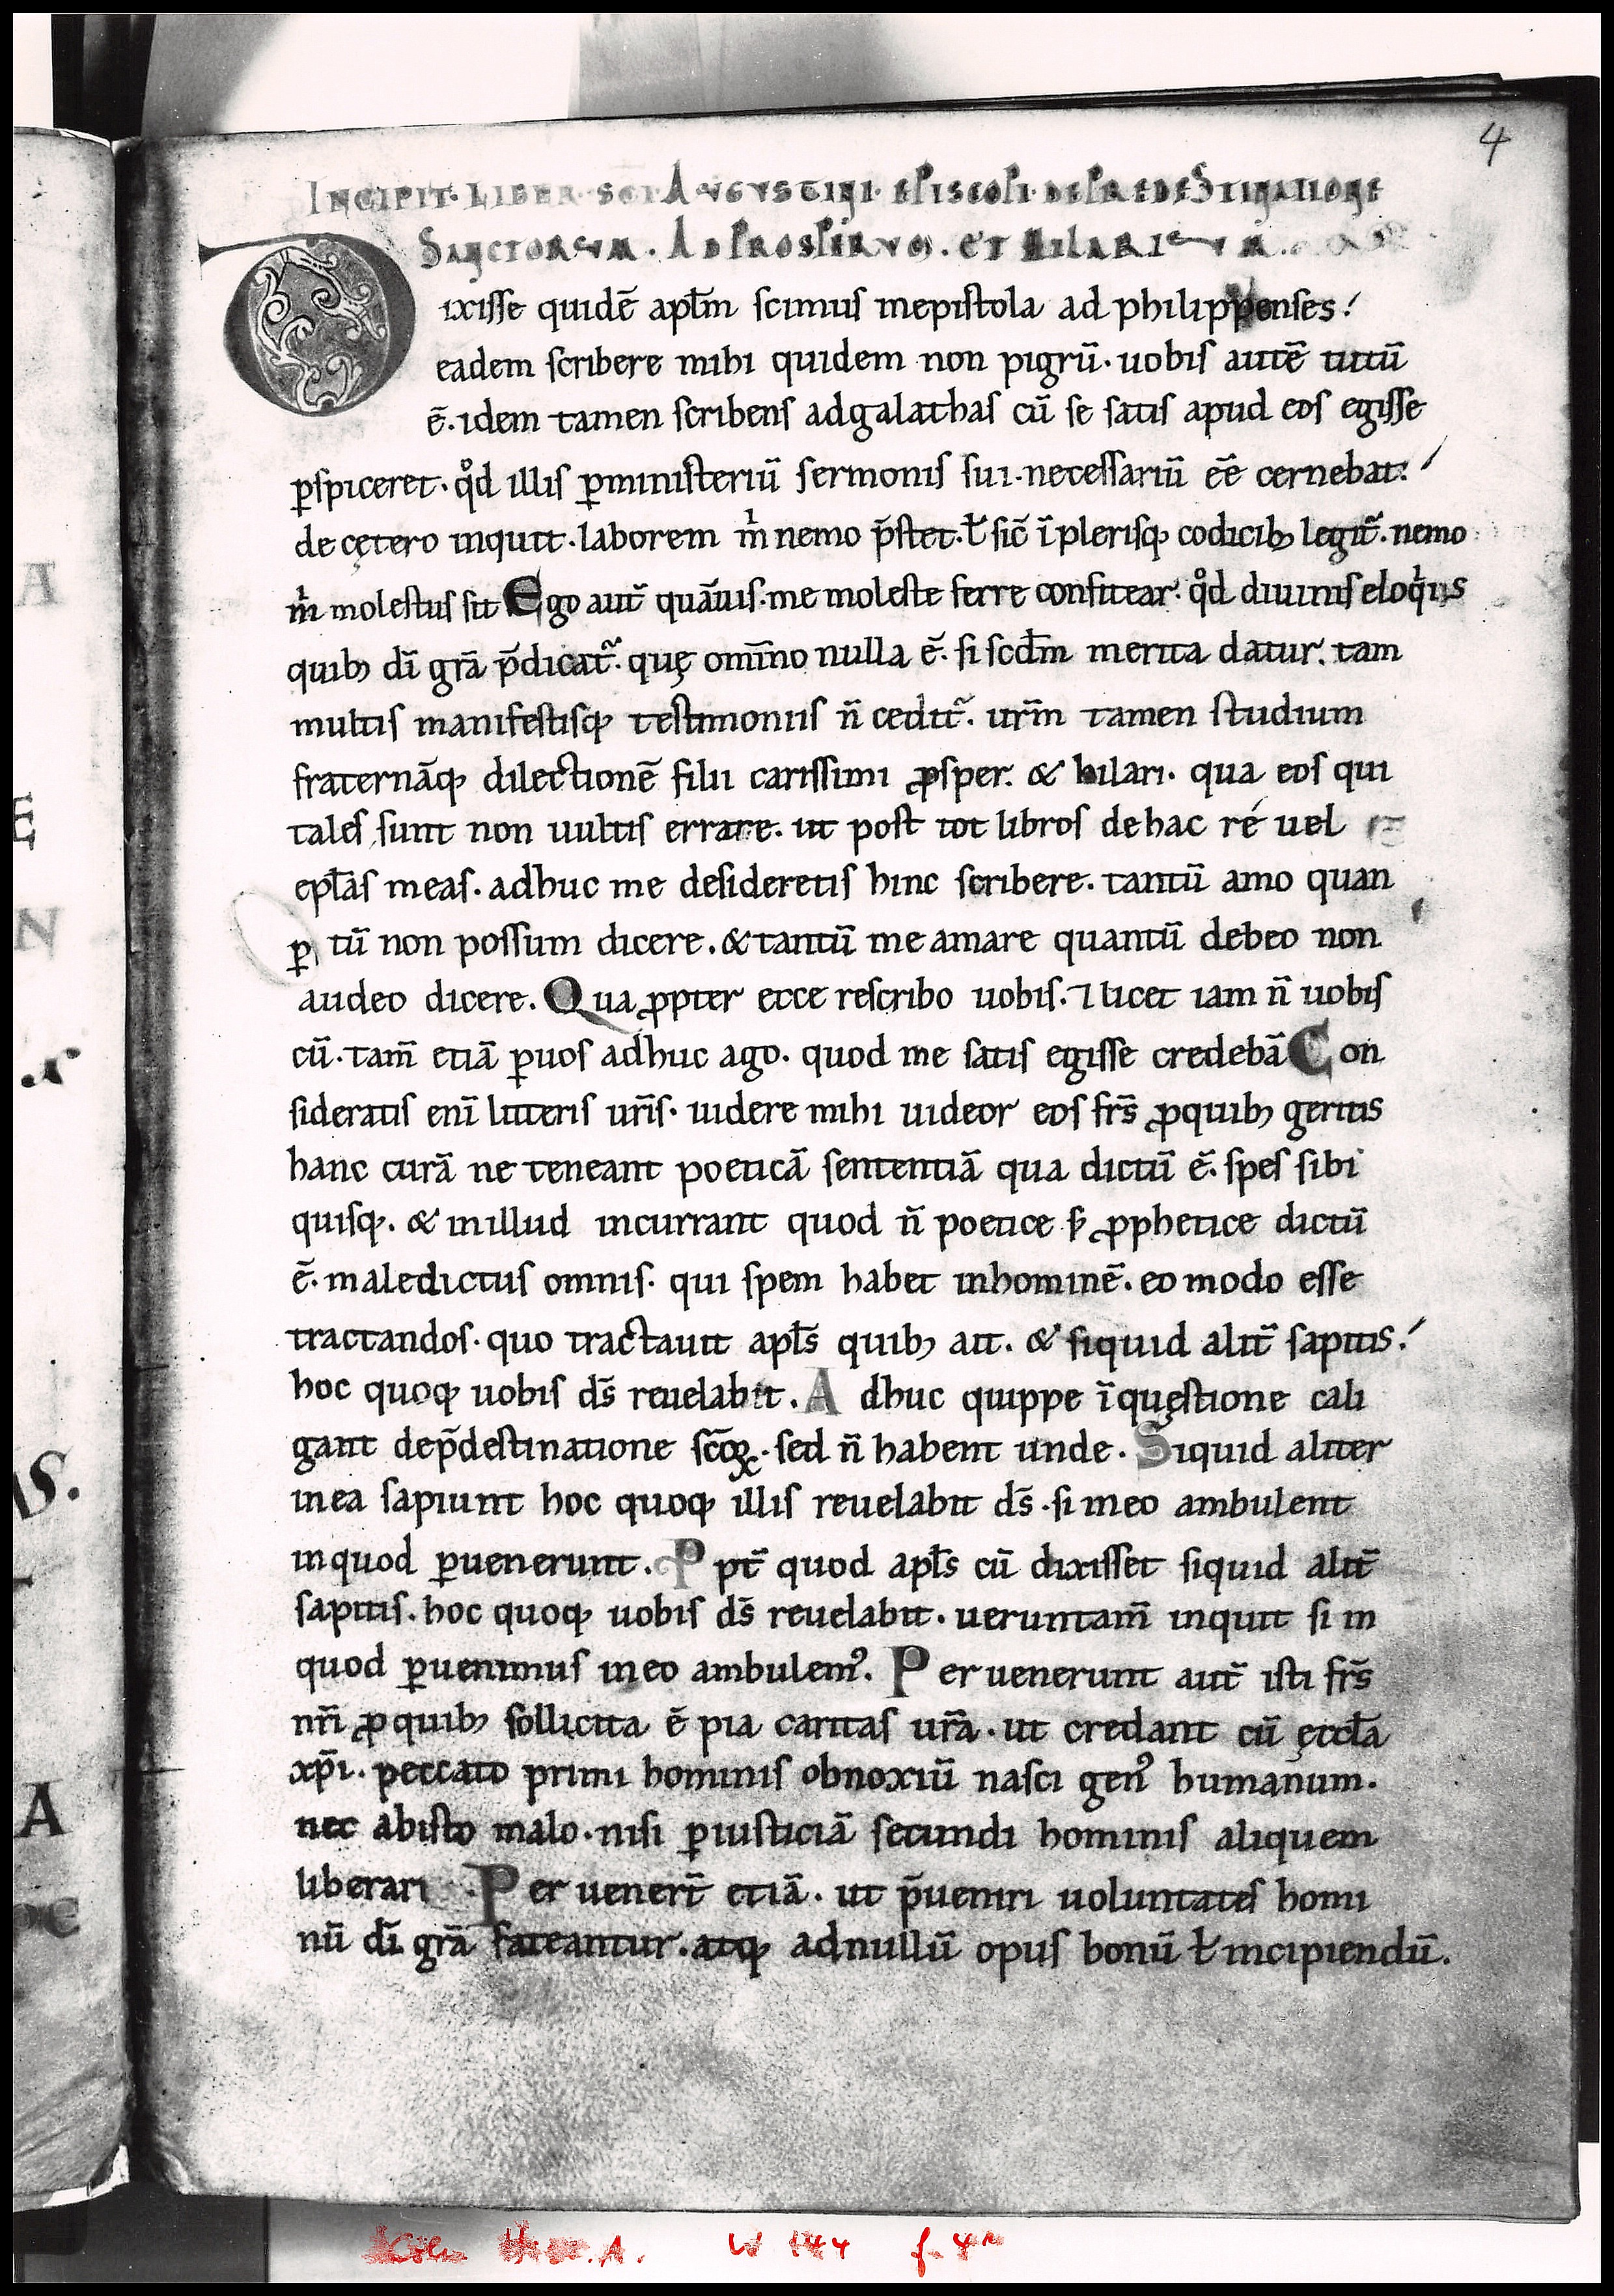 4
INCIPIT· LIBER· SCI· AVGVSTINI· EPISCOPI· DE PREDESTINATIONE
SANCTORVM· AD PROSPERVM· ET HILARIVM·
Dixisse quidē aptm̄ scimus inepistola ad philippenses!
eadem scribere mihi quidem non pigrū· uobis autē tutū
ē· idem tamen scribens adgalathas cū se satis apud eos egisse
ꝑspiceret· qͦd illis ꝑministeriū sermonis sui· necessariū eē cernebat!
de cętero inquit· laborem m̓ nemo p̄stet· ł sic̄ ī pleriſqꝫ codicibꝫ legit᷑· nemo
m̓ molestus sit Ego aut̄ quāuis· me moleste ferre confitear· qͦd diuinis eloqͥis
quibꝫ dī grā p̄dicat᷑· quę omīno nulla ē· si scdm̄ merita datur· tam
multis manifestisqꝫ testimoniis n̄ cedit᷑· urm̄ tamen studium
fraternāqꝫ dilectionē filii carissimi ꝓsper· & hilari· qua eos qui
tales sunt non uultis errare· ut post tot libros dehac ré uel
epłas meas· adhuc me desideretis hinc scribere· tantū amo quan
ꝑ tū non possum dicere· & tantū me amare quantū debeo non
audeo dicere· Quaꝓpter ecce rescribo uobis· ⁊ licet iam n̄ uobis
cū· tam̄ etiā ꝑuos adhuc ago· quod me satis egisse credebā Con
sideratis enī litteris urīs· uidere mihi uideor eos frs̄ ꝓquibꝫ geritis
hanc curā ne teneant poeticā sententiā qua dictū ē· spes sibi
quisqꝫ· & inillud incurrant quod n̄ poetice s; ꝓphetice dictū
ē· maledictus omnis· qui spem habet inhominē· eo modo esse
tractandos· quo tractauit apłs quibꝫ ait· & siquid alit̄ sapitis!
hoc quoqꝫ uobis ds̄ reuelabit· Adhuc quippe ī quęstione cali
gant dep̄destinatione scōꝝ· sed n̄ habent unde· Siquid aliter
inea sapiunt hoc quoqꝫ illis reuelabit ds̄· si ineo ambulent
inquod ꝑuenerunt· Ppt̄ quod apłs cū dixisset siquid alit̄
sapitis· hoc quoqꝫ uobis ds̄ reuelabit· ueruntam̄ inquit si in
quod ꝑuenimus ineo ambulem᷒· Peruenerunt aut̄ isti frs̄
nrī ꝓquibꝫ sollicita ē pia caritas urā· ut credant cū ęccła
xpī· peccato primi hominis obnoxiū nasci gen᷒ humanum·
nec abisto malo· nisi ꝑiusticiā secundi hominis aliquem
liberari· Peruenert̄ etiā· ut p̄ueniri uoluntates homi
nū dī grā fateantur· atqꝫ adnullū opus bonū ł incipiendū·
W 144 f. 4r